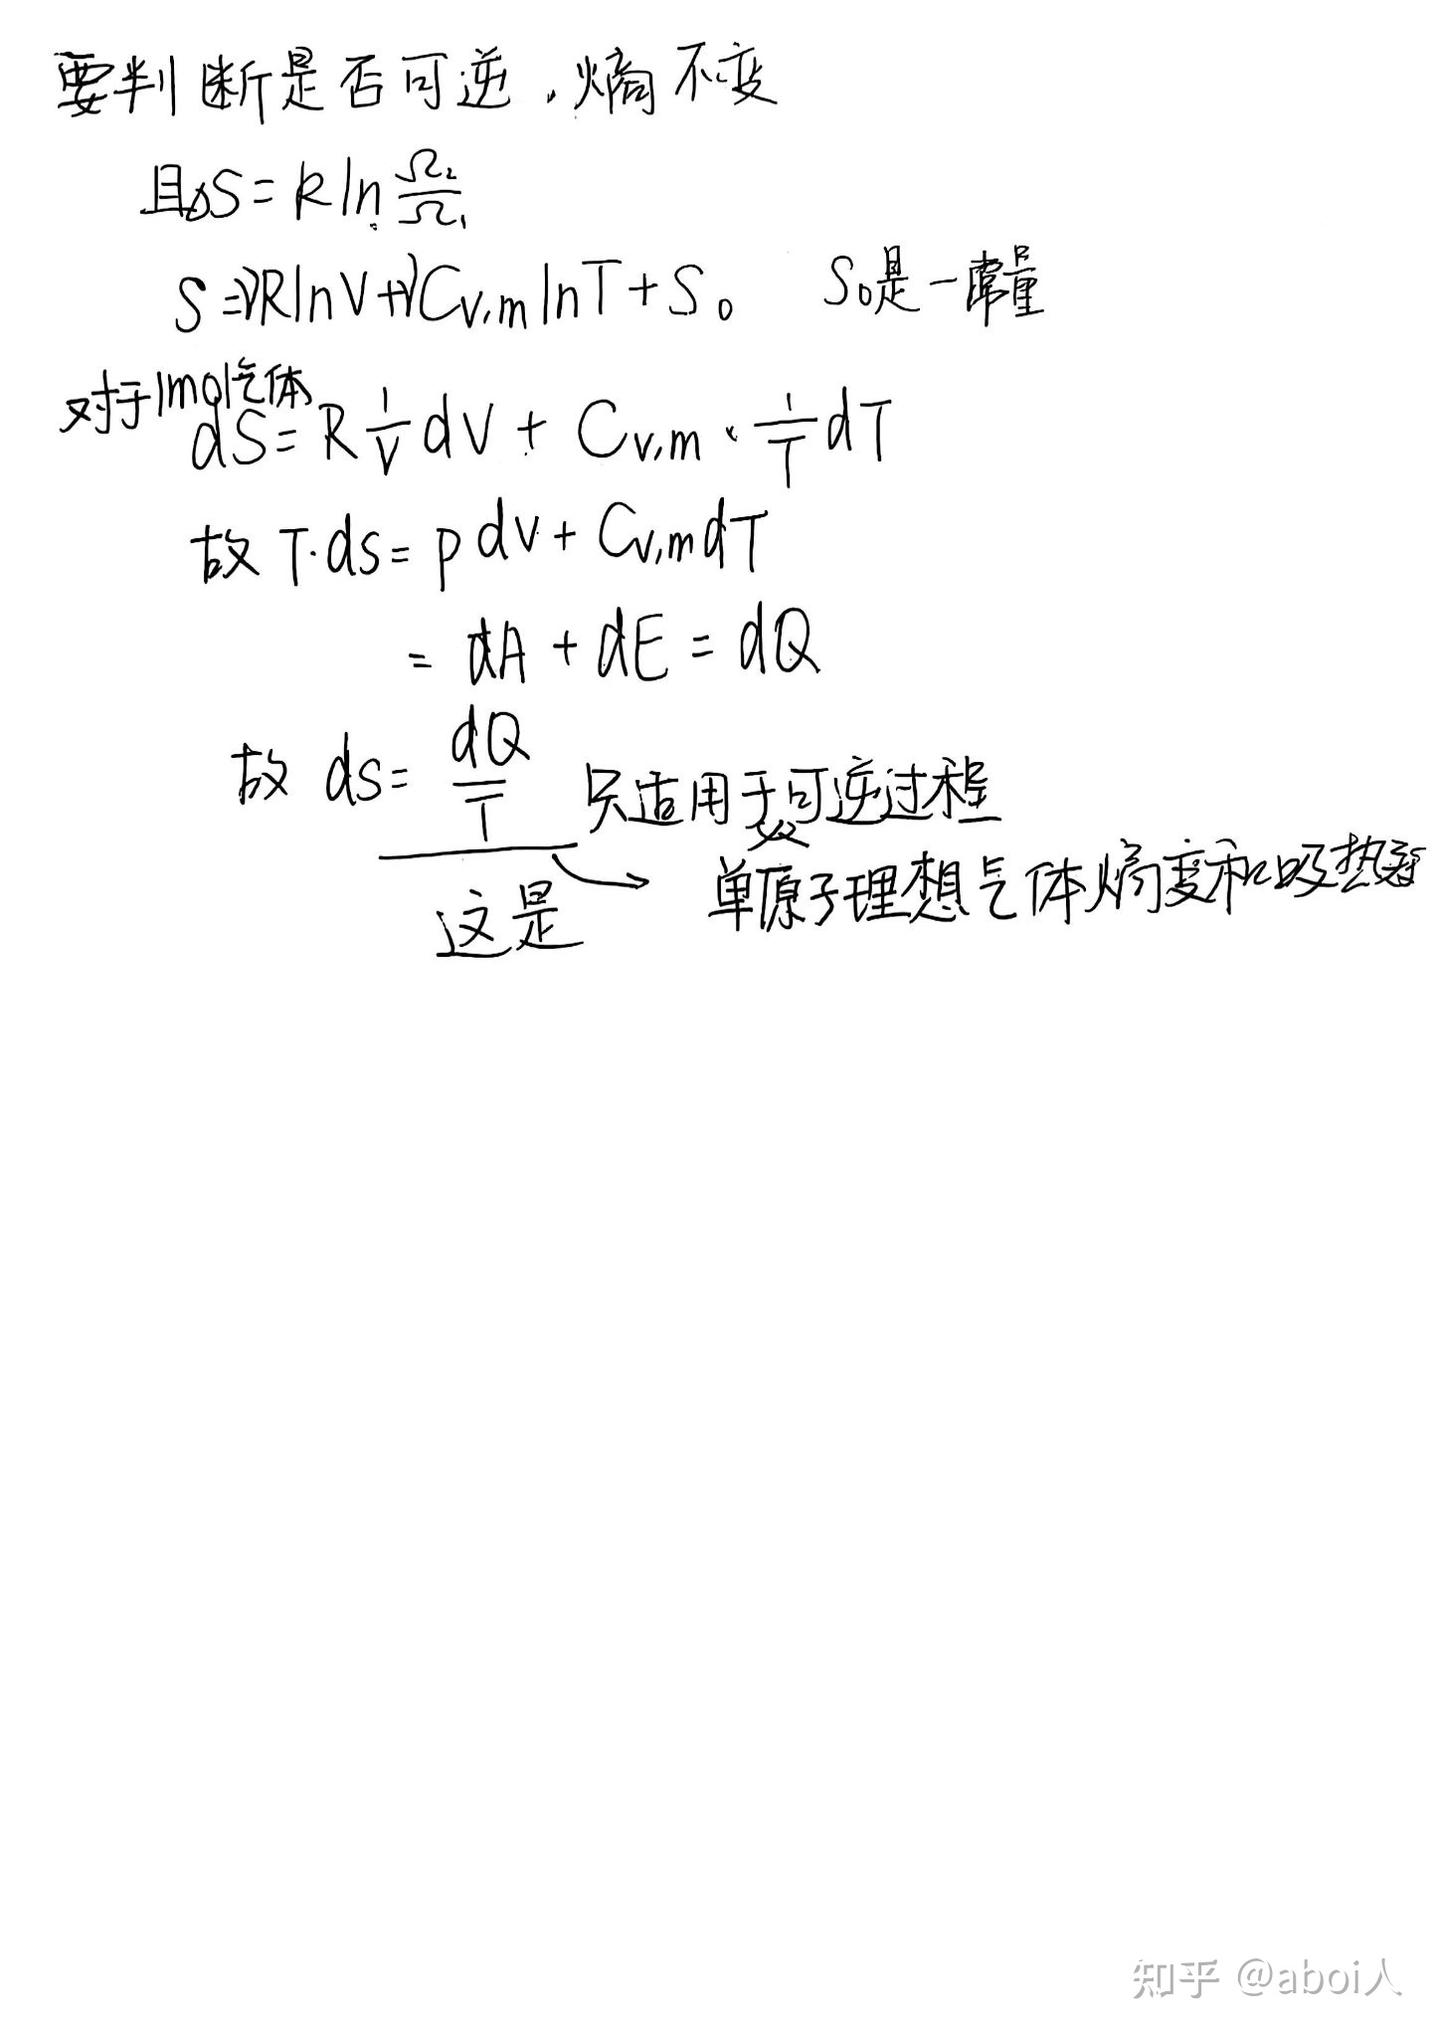 要判断是否可逆，熵不变
且ΔS = k ln Ω₂/Ω₁
S = νR ln V + νC_{V,m} ln T + S₀ S₀是一常量
对于1mol气体
dS = R 1/V dV + C_{V,m} · 1/T dT
故 T·ds = p dV + C_{V,m} dT
= dA + dE = dQ
故 ds = dQ/T 只适用于可逆过程
这是 单原子理想气体熵变和吸热
知乎 @aboi人